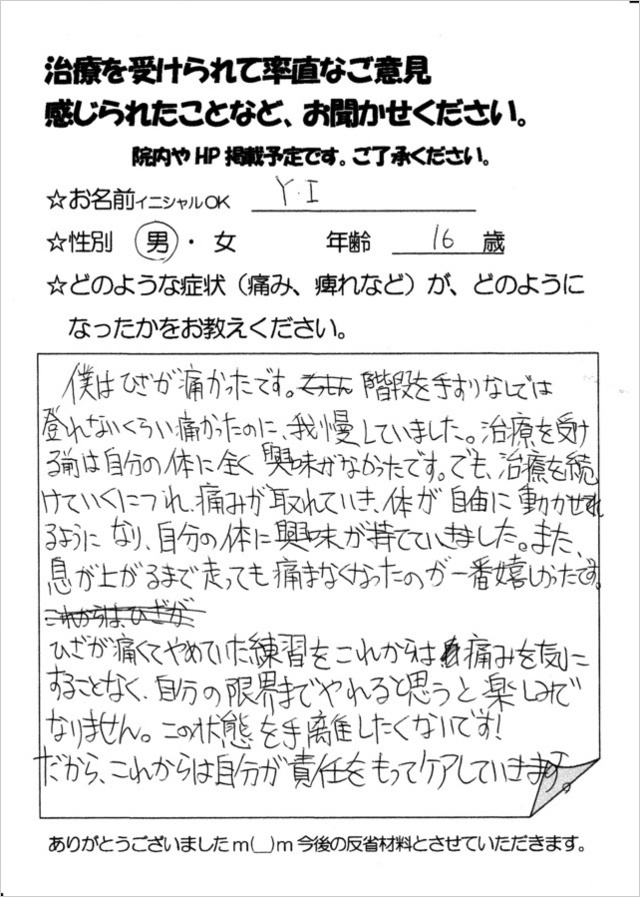 治療を受けられて率直なご意見
感じられたことなど、お聞かせください。
院内やHP掲載予定です。ご了承ください。
☆お名前イニシャルOK Y.I
☆性別 男・女 年齢 16 歳
☆どのような症状（痛み、痺れなど）が、どのように
なったかをお教えください。
僕はひざが痛かったです。階段を手すりなしでは
登れないくらい痛かったのに、我慢していました。治療を受け
る前は自分の体に全く興味がなかったです。でも、治療を続
けていくにつれ、痛みが取れていき、体が自由に動かせれ
るようになり、自分の体に興味が持てていきました。また、
息が上がるまで走っても痛まなくなったのが一番嬉しかったです。
これからは、ひざが
ひざが痛くてやめていた練習をこれからは痛みを気に
することなく、自分の限界までやれると思うと楽しみで
なりません。この状態を手離したくないです!
だから、これからは自分が責任をもってケアしていきます。
ありがとうございましたm(__)m今後の反省材料とさせていただきます。